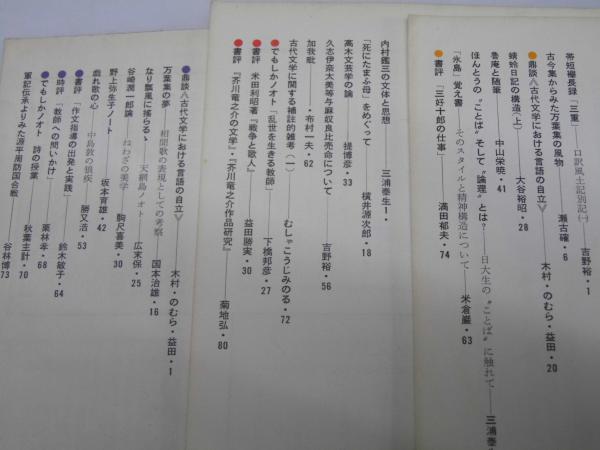 帯短襷長録「三重」 ―口訳風土記別記(一)― 吉野裕・1
古今集からみた万葉集の風物 瀬古確・6
●鼎談〈古代文学における言語の自立〉 木村・のむら・益田・20
蜻蛉日記の構造(上) 大谷裕昭・28
魯庵と随筆 中山栄暁・41
ほんとうの〝ことば〟そして〝論理〟とは?―日大生の〝ことば〟に触れて― 三浦泰生
「氷島」覚え書 ―そのスタイルと精神構造について― 米倉巌・63
●書評 『三好十郎の仕事』 満田郁夫・74
内村鑑三の文体と思想 三浦泰生・1
「死にたまふ母」をめぐって 横井源次郎・18
高木文芸学の論 堤博彦・33
久志伊奈太美等与麻奴良比売命について 吉野裕・56
加我毗 布村一夫・62
古代文学に関する補註的雑考(一) むしゃこうじみのる・72
●でもしかノオト「乱世を生きる教師」 下橋邦彦・27
●書評 米田利昭著『戦争と歌人』 益田勝実・30
●書評 『芥川竜之介の文学』・『芥川竜之介作品研究』 菊地弘・80
●鼎談〈古代文学における言語の自立〉 木村・のむら・益田・1
万葉集の夢 相聞歌の表現としての考察 国本治雄・16
なり瓢風に揺らるゝ 天網島ノオト 広末保・25
谷崎潤一郎論 ―ねわざの美学 駒尺喜美・30
野上弥生子ノート 坂本育雄・42
戯れ歌の心 中島敦の狼疾
●書評 『作文指導の出発と実践』 勝又浩・53
●時評 「教師への問いかけ」 鈴木敏子・64
●でもしかノオト 詩の授業 栗林孝・68
秋葉圭計・70
軍記伝承よりみた源平周防国合戦 谷林博・73